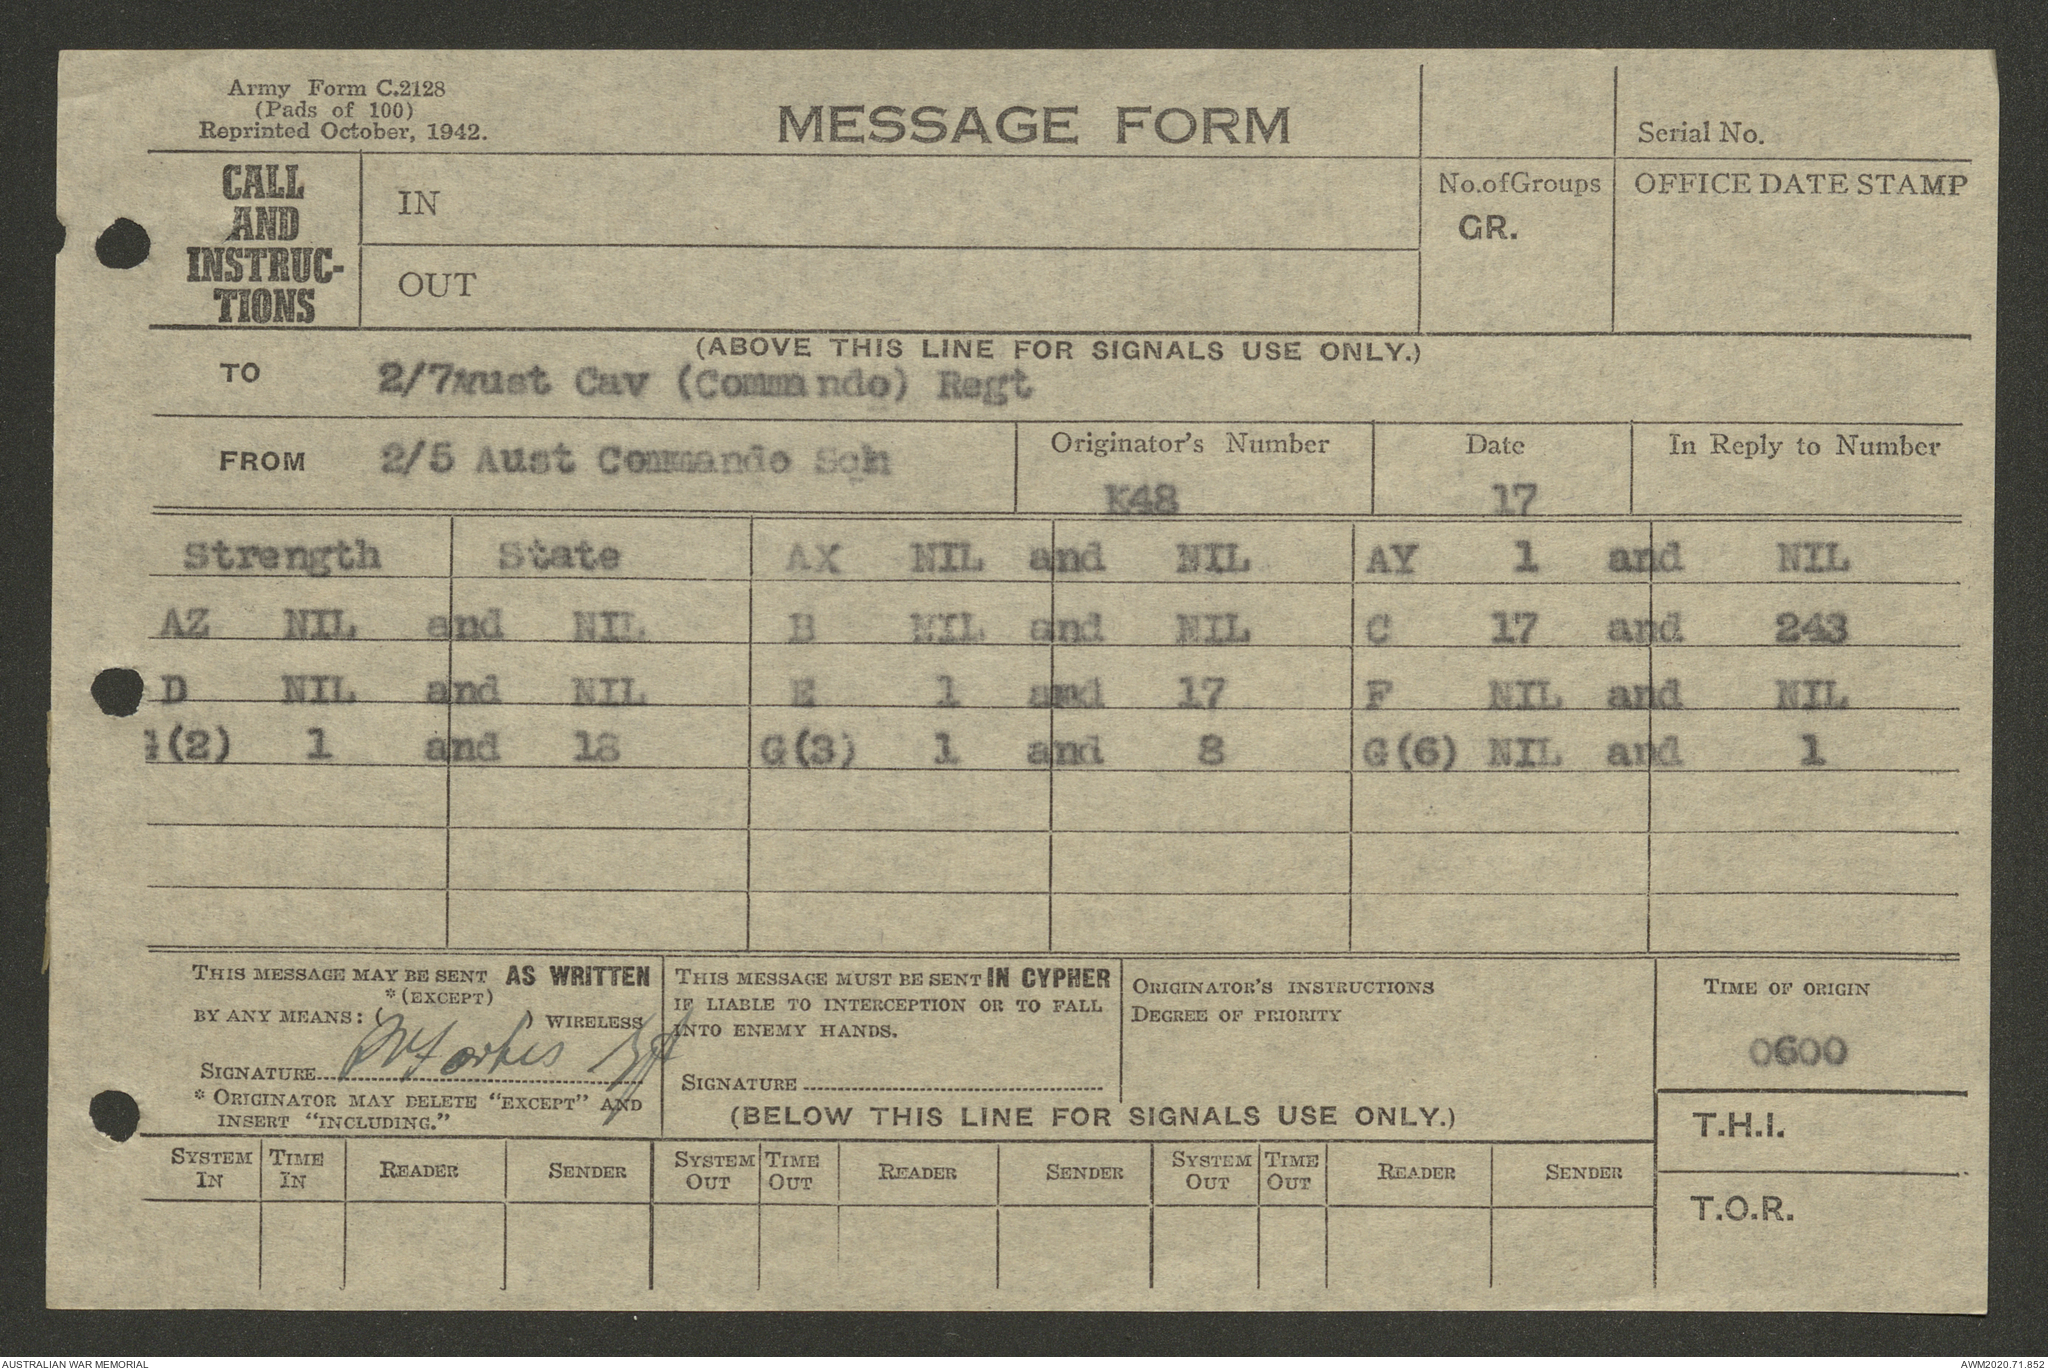 Army Form C.2128
(Pads of 100)
Reprinted October, 1942.
MESSAGE FORM
Serial No.
CALL
AND
INSTRUC-
TIONS
IN
OUT
No. of Groups
GR.
OFFICE DATE STAMP
(ABOVE THIS LINE FOR SIGNALS USE ONLY.)
TO 2/7 Aust Cav (Commando) Regt
FROM 2/5 Aust Commando Sqn
Originator's Number
K48
Date
17
In Reply to Number
Strength State AX NIL and NIL AY 1 and NIL
AZ NIL and NIL B NIL and NIL C 17 and 243
D NIL and NIL E 1 and 17 F NIL and NIL
G(2) 1 and 18 G(3) 1 and 8 G(6) NIL and 1
THIS MESSAGE MAY BE SENT AS WRITTEN
*(EXCEPT)
BY ANY MEANS: ( ) WIRELESS
SIGNATURE Forbes
* ORIGINATOR MAY DELETE "EXCEPT" AND
INSERT "INCLUDING."
THIS MESSAGE MUST BE SENT IN CYPHER
IF LIABLE TO INTERCEPTION OR TO FALL
INTO ENEMY HANDS.
SIGNATURE
ORIGINATOR'S INSTRUCTIONS
DEGREE OF PRIORITY
TIME OF ORIGIN
0600
(BELOW THIS LINE FOR SIGNALS USE ONLY.)
T.H.I.
T.O.R.
SYSTEM IN TIME IN READER SENDER SYSTEM OUT TIME OUT READER SENDER SYSTEM OUT TIME OUT READER SENDER
AUSTRALIAN WAR MEMORIAL
AWM2020.71.852